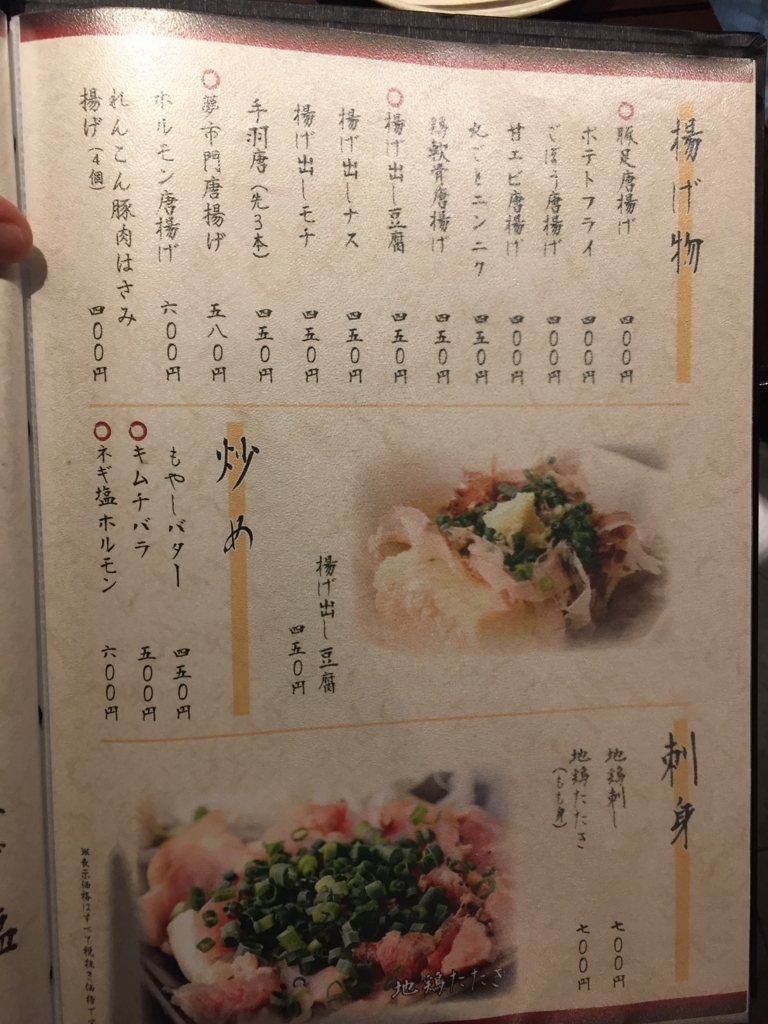 揚げ物
○豚足唐揚げ 四〇〇円
ポテトフライ 四〇〇円
ごぼう唐揚げ 四〇〇円
甘エビ唐揚げ 四〇〇円
丸ごとニンニク 四五〇円
鶏軟骨唐揚げ 四五〇円
○揚げ出し豆腐 四五〇円
揚げ出しナス 四五〇円
揚げ出しモチ 四五〇円
手羽唐(先3本) 四五〇円
○夢市門唐揚げ 五八〇円
ホルモン唐揚げ 六〇〇円
れんこん豚肉はさみ
揚げ(4個) 四〇〇円
揚げ出し豆腐
四五〇円
炒め
もやしバター 四五〇円
○キムチバラ 五〇〇円
○ネギ塩ホルモン 六〇〇円
刺身
地鶏刺し 七〇〇円
地鶏たたき 七〇〇円
(もも身)
地鶏たたき
※表示価格はすべて税抜き価格です